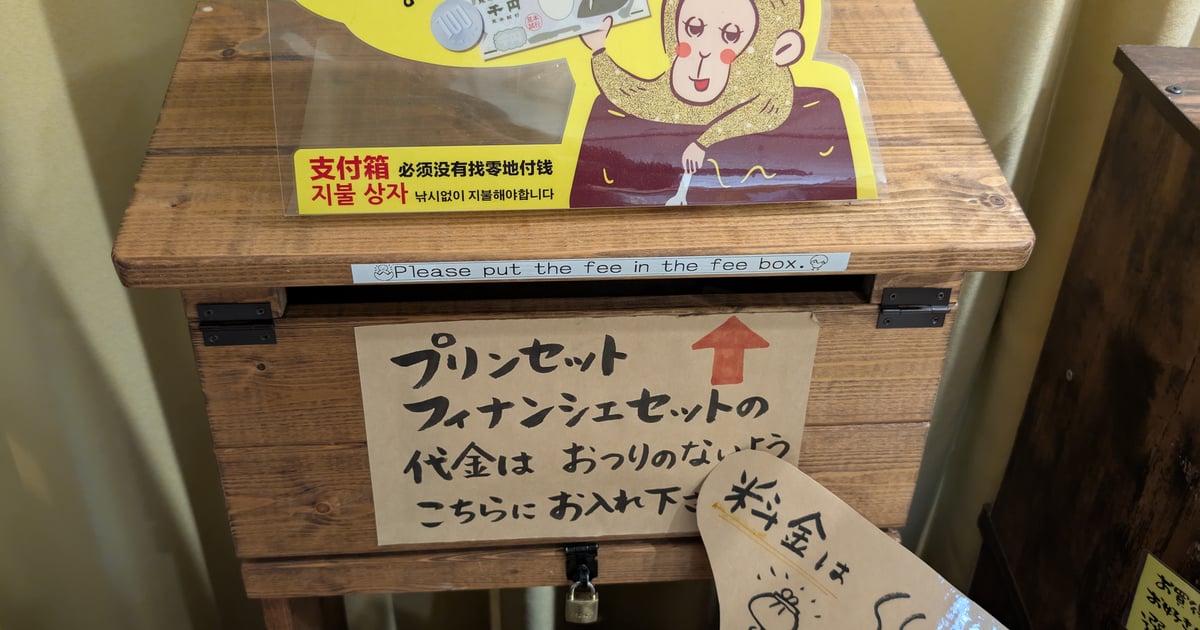 100
千円
支付箱 必须没有找零地付钱
지불 상자 낚시없이 지불해야합니다
Please put the fee in the fee box.
プリンセット
フィナンシェセットの
代金は おつりのないよう
こちらに お入れ下さ
料金は